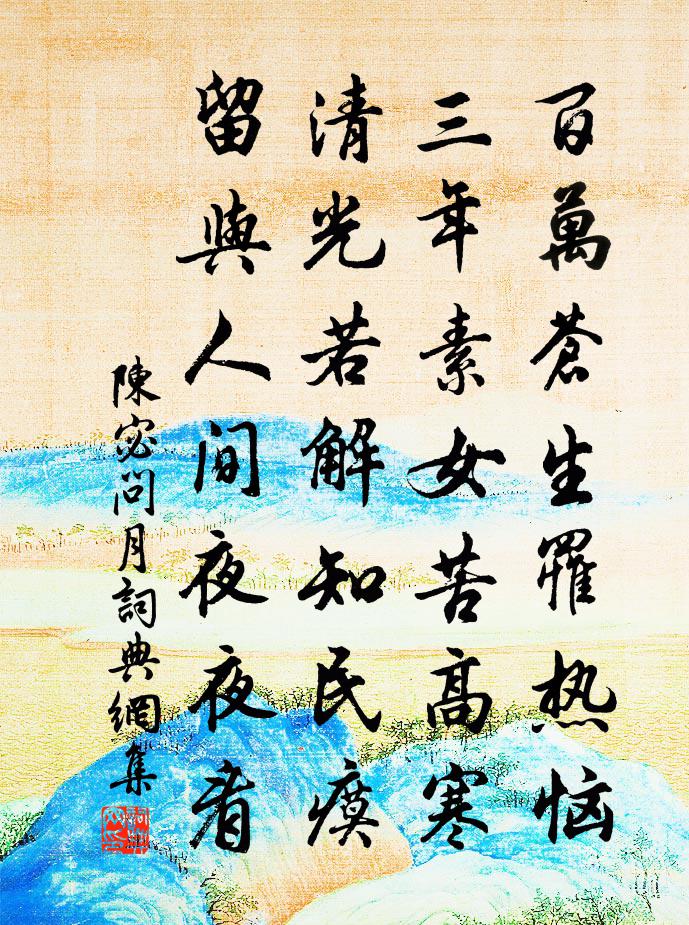 百萬蒼生罹热恼
三年素女苦高寒
清光若解知民瘼
留與人间夜夜看
陳宓问月詞典網集